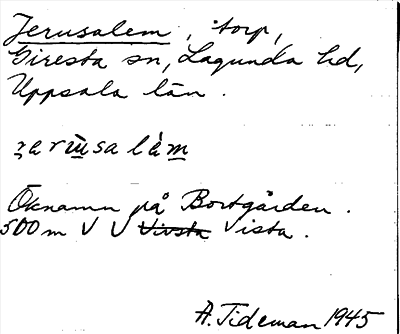 Jerusalem, torp,
Giresta sn, Lagunda hd,
Uppsala län.
jerusalàm
Öknamn på Bortgården.
500 m V V Vivsta Vista.
A. Tideman 1945